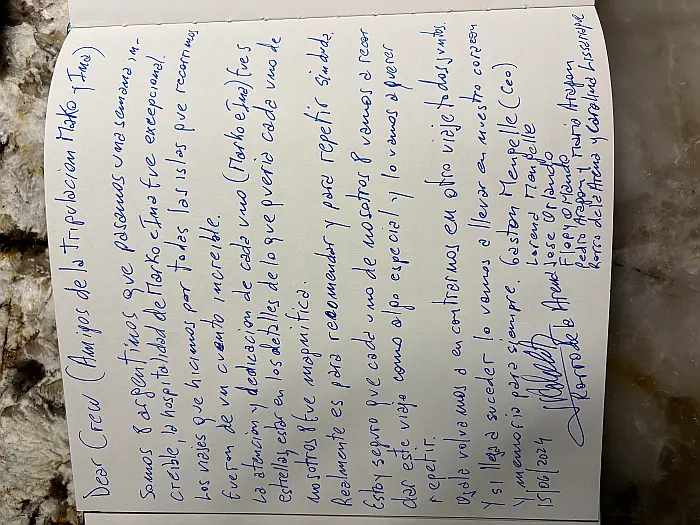 Dear Crew (Amigos de la Tripulacion Marko y Ima)
Somos 8 argentinos que pasamos una semana in-
creible, la hospitalidad de Marko e Ima fve excepcional
Los viajes que hicimos por todas las islas que recorrimos
fueron de un cuento increible.
La atencion y dedicacion de cada uno (Marko e Ima) fve 5
estrellas, estar en los detalles de lo que queria cada uno de
nosotros 8 fve magnifica.
Realmente es para recomendar y para repetir sin duda
Estoy seguro que cada uno de nosotros 8 vamos a recor
dar este viaje como algo especial y lo vamos a querer
repetir.
Ojala volvamos a encontrarnos en otro viaje todos juntos.
Y si llega a suceder lo vamos a llevar en nuestro corazon
Y memoria para siempre. Gaston Menpelle (Ceo)
Lorena Menpelle
Jose Orlando
Flopy O Mando
Pedro Aragon y Maria Aragon
Rorro de la Arena y Carolina
15/06/2024
Rorro de la Arena